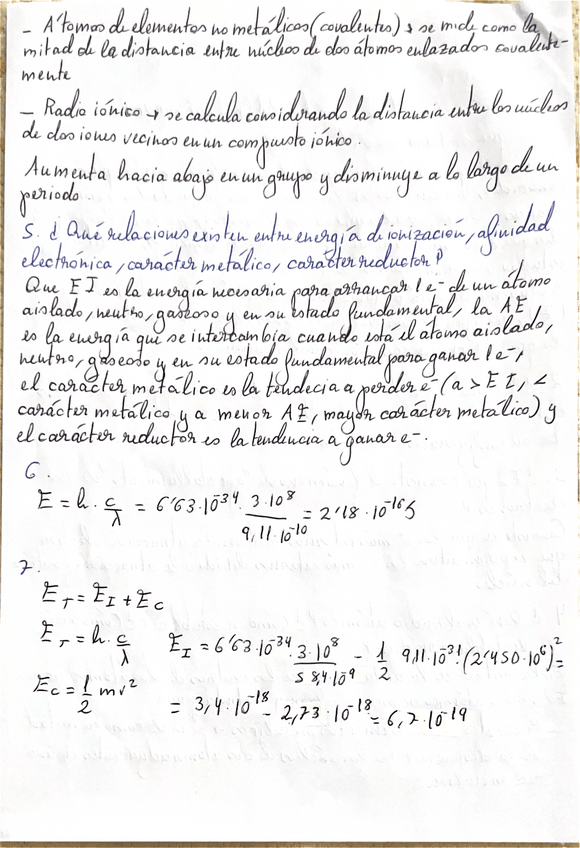 - Átomos de elementos no metálicos (covalentes) → se mide como la
mitad de la distancia entre núcleos de dos átomos enlazados covalente-
mente
- Radio iónico → se calcula considerando la distancia entre los núcleos
de dos iones vecinos en un compuesto iónico.
Aumenta hacia abajo en un grupo y disminuye a lo largo de un
periodo
5. ¿Qué relaciones existen entre energía de ionización, afinidad
electrónica, carácter metálico, carácter reductor?
Que EI es la energía necesaria para arrancar 1 e- de un átomo
aislado, neutro, gaseoso y en su estado fundamental, la AE
es la energía que se intercambia cuando está el átomo aislado,
neutro, gaseoso y en su estado fundamental para ganar 1 e-,
el carácter metálico es la tendecia a perder e- (a > EI, <
carácter metálico y a menor AE, mayor carácter metálico) y
el carácter reductor es la tendencia a ganar e-.
6.
E = h · c/λ = 6'63·10^-34 · 3·10^8 / 9,11·10^-10 = 2'18·10^-16 J
7.
E_T = E_I + E_C
E_T = h · c/λ E_I = 6'63·10^-34 · 3·10^8 / 58,4·10^-9 - 1/2 9,11·10^-31 · (2'450·10^6)^2 =
E_C = 1/2 mv^2 = 3,4·10^-18 - 2,73·10^-18 = 6,7·10^-19